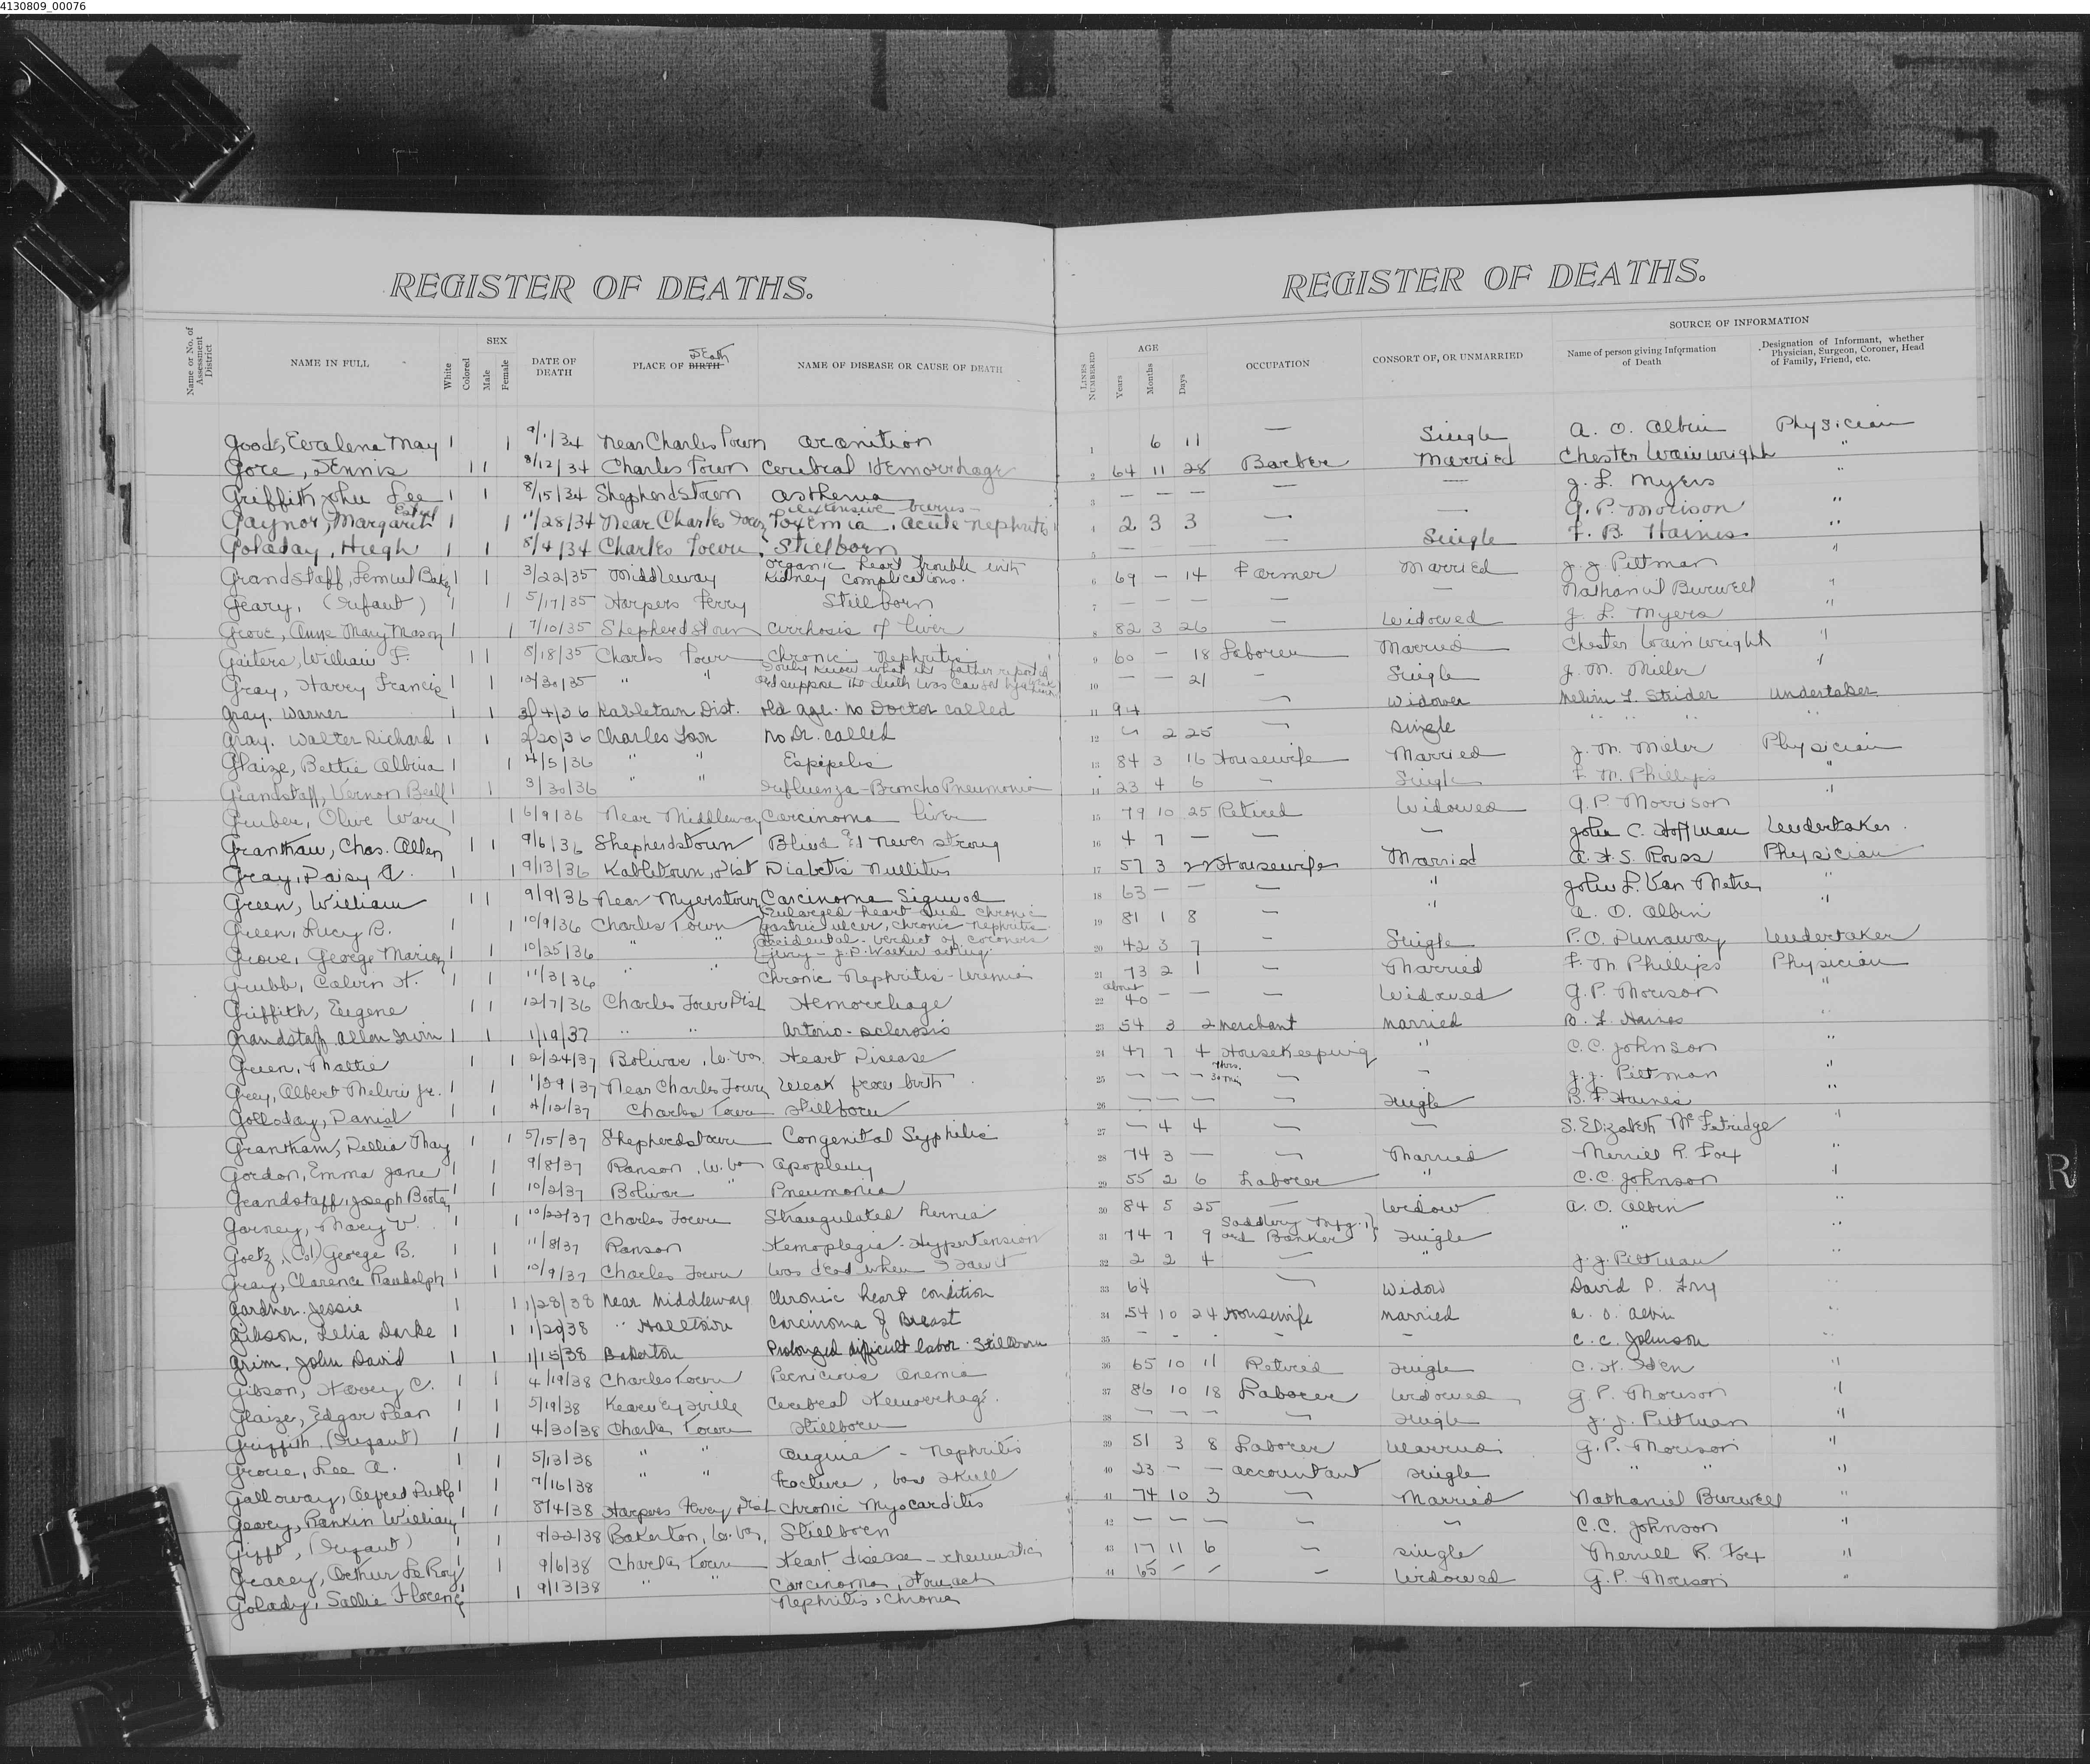 4130809_00076
REGISTER OF DEATHS.
REGISTER OF DEATHS.
Name or No. of Assessment District
NAME IN FULL
White
Colored
SEX
Male
Female
DATE OF DEATH
PLACE OF BIRTH Death
NAME OF DISEASE OR CAUSE OF DEATH
LINES NUMBERED
AGE
Years
Months
Days
OCCUPATION
CONSORT OF, OR UNMARRIED
SOURCE OF INFORMATION
Name of person giving Information of Death
Designation of Informant, whether Physician, Surgeon, Coroner, Head of Family, Friend, etc.
Goode, Evalena May 1 1 9/1/34 Near Charles Town 1 6 11 — Single A. O. Albin Physician
Gore, Dennis 1 1 8/12/34 Charles Town Cerebral Hemorrhage 2 64 11 28 Barber Married Chester Wainwright "
Griffith John Lee 1 1 8/15/34 Shepherdstown Asthema 3 — — — — — J. L. Myers
Gaynor, Margaret Ethel 1 1 11/28/34 Near Charles Town extensive burns - Toxemia, acute nephritis 4 2 3 3 — — G. P. Morison "
Goladay, Hugh 1 1 8/4/34 Charles Town Stillborn 5 — — Single F. B. Haines "
Grandstaff, Lemuel Baker 1 1 3/22/35 Middleway Organic heart trouble with Kidney complications. 6 69 — 14 Farmer Married J. J. Pittman "
Geary, (Infant) 1 1 5/17/35 Harpers Ferry Stillborn 7 — — — — — Nathaniel Burwell "
Grove, Anne Mary Mason 1 1 7/10/35 Shepherdstown Cirrhosis of liver 8 82 3 26 — Widowed J. L. Myers "
Gaiters, William F. 1 1 8/18/35 Charles Town Chronic Nephritis 9 60 — 18 Laborer Married Chester Wainwright "
Gray, Harry Francis 1 1 12/30/35 " " I only know what the father reported and suppose the death was caused by 10 — — 21 — Single J. M. Miller "
Gray. Warner 1 1 3/4/36 Kabletown Dist. Old age. No Doctor called 11 94 — Widower Melvin T. Strider Undertaker
Gray. Walter Richard 1 1 2/20/36 Charles Town No Dr. called 12 2 25 — Single " " " "
Glaize, Bettie Albina 1 1 4/5/36 " " Espipelis 13 84 3 16 Housewife Married J. M. Miller Physician
Grandstaff, Vernon Beall 1 1 3/30/36 " " Influenza - Broncho Pneumonia 14 23 4 6 — Single F. M. Phillips "
Gruber, Olive Ware 1 1 6/9/36 Near Middleway Carcinoma liver 15 79 10 25 Retired Widowed G. P. Morrison "
Grantham, Chas. Allen 1 1 9/6/36 Shepherdstown Blind & never strong 16 4 7 — — — John C. Hoffman Undertaker.
Gray, Daisy A. 1 1 9/13/36 Kabletown, Dist Diabetis Mullitus 17 57 3 22 Housewife Married A. H. S. Rouss Physician
Green, William 1 1 9/9/36 Near Myerstown Carcinoma Sigmod 18 63 — — — " John L. Van Metre "
Green, Lucy B. 1 1 10/9/36 Charles Town Enlarged heart and chronic gastric ulcer, chronic nephritis 19 81 1 8 — " A. O. Albin "
Grove, George Marion 1 1 10/25/36 " " Accidental - verdict of coroners jury - J. P. Walker acting 20 42 3 7 — Single P. O. Dunaway Undertaker
Grubb, Calvin H. 1 1 11/3/36 " " Chronic Nephritis - Uremia 21 73 2 1 — Married F. M Phillips Physician
Griffith, Eugene 1 1 12/7/36 Charles Town Dist Hemorrhage 22 about 40 — — — Widowed G. P. Morison "
Grandstaff Allen Irvin 1 1 1/19/37 " " Arterio-sclerosis 23 54 3 2 Merchant Married B. F. Haines "
Green, Mattie 1 1 2/24/37 Bolivar, W. Va. Heart Disease 24 47 7 4 Housekeeping " C. C. Johnson "
Grey, Albert Melvin Jr. 1 1 1/29/37 Near Charles Town Weak from birth 25 — — — 7 hrs. 30 min — — J. J. Pittman "
Golloday, Daniel 1 1 4/12/37 Charles Town Stillborn 26 — — — — Single B. F. Haines "
Grantham, Dellia May 1 1 5/15/37 Shepherdstown Congenital Syphilis 27 — 4 4 — — S. Elizabeth McFetridge "
Gordon, Emma Jane 1 1 9/8/37 Ranson, W. Va Apoplexy 28 74 3 — — Married Merrill R. Fox "
Grandstaff, Joseph Boota 1 1 10/2/37 Bolivar " Pneumonia 29 55 2 6 Laborer " C. C. Johnson "
Garney, Mary V. 1 1 10/22/37 Charles Town Strangulated hernia 30 84 5 25 — Widow A. O. Albin "
Goetz, (Col) George B. 1 1 11/8/37 Ranson Hemoplegia - Hypertension 31 74 7 9 Saddlery Mfg. and Banker Single " "
Gray, Clarence Randolph 1 1 10/9/37 Charles Town Was dead when I saw it 32 2 2 4 — " J. J. Pittman "
Gardner. Jessie 1 1 1/28/38 Near Middleway Chronic heart condition 33 64 — Widow David P. Fry "
Gibson, Lelia Darke 1 1 1/20/38 " Halltown Carcinoma of Breast 34 54 10 24 Housewife Married A. O. Albin "
Grim, John David 1 1 1/15/38 Bakerton Prolonged difficult labor. Stillborn 35 - - - - - C. C. Johnson
Gibson, Harvey C. 1 1 4/19/38 Charles Town Pernicious anemia 36 65 10 11 Retired Single "
Glaize, Edgar Dean 1 1 5/19/38 Kearneysville Cerebral Hemorrhage. 37 86 10 18 Laborer Widowed G. P. Morison "
Griffith (Infant) 1 1 4/30/38 Charles Town Stillborn 38 — — — — Single J. J. Pittman "
Grove, Lee A. 1 1 5/13/38 " " Angina - Nephritis 39 51 3 8 Laborer Married G. P. Morison "
Galloway, Alfred 1 1 7/16/38 " " Fracture, base skull 40 23 — — Accountant Single " " "
Geary, Rankin William 1 1 8/4/38 Harpers Ferry Dist Chronic Myocarditis 41 74 10 3 — Married Nathaniel Burwell "
Gifft, (Infant) 1 9/22/38 Bakerton, W. Va. Stillborn 42 — — — — — C. C. Johnson "
Gracey, Arthur LeRoy 1 1 9/6/38 Charles Town Heart disease - rheumatic 43 17 11 6 — Single Merrill R. Fox "
Golady, Sallie Florence 1 1 9/13/38 " " Carcinoma, Stomach Nephritis, chronic 44 65 — — — Widowed G. P. Morison "
R